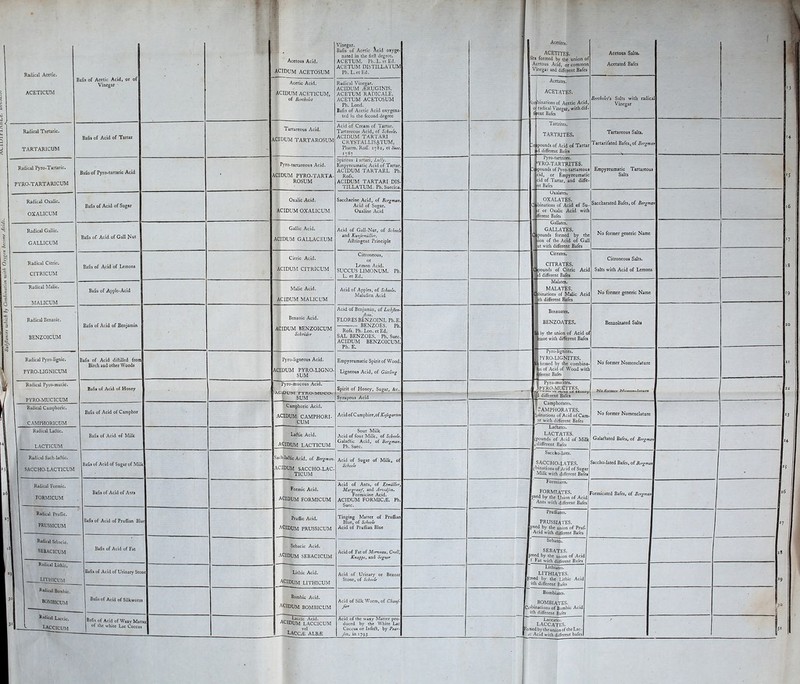 Radical Acetic.
ACETICUM
Basis of Acetic Acid, or of
Vinegar
Acetous Acid.
ACIDUM ACETOSUM
Vinegar.
Basis of Acetic Acid oxyge-
nated in the first degree.
ACETUM. Ph. L. et Ed.
ACETUM DISTILLATUM
Ph. L. et Ed.
ACETITES.
formed by the union of
Acetous Acid, or common
Vinegar and different Bases
Acetous Salts.
Acetated Bases
Acetic Acid.
ACIDUM ACETICUM,
of Bertholet
Radical Vinegar.
ACIDUM ÆRUGINIS.
ACETUM RADICALE.
ACETUM ACETOSUM
Ph. Lond.
Basis of Acetic Acid oxygena-
ted in the second degree
Acetates.
ACETATES.
Combinations of Acetic Acid,
or radical Vinegar, with dif-
ferent Bases
Bertholet's Salts with radical
Vinegar
Radical Tartaric.
TARTARICUM
Basis of Acid of Tartar
Tartareous Acid.
ACIDUM TARTAROSUM
Acid of Cream of Tartar.
Tartareous Acid, of Scheele.
ACIDUM TARTARI
CRYSTALLISATUM,
Pharm. Ross. 1782, et Suec.
TARTRITES.
Compounds of Acid of Tartar
and different Bases
Tartareous Salts.
Tartarisated Bases, of Bergman
Radical Pyro-Tartaric.
PYRO-TARTARICUM
Basis of Pyro-tartaric Acid
Pyro-tartareous Acid.
ACIDUM PYRO-TARTA-
ROSUM
Spiritus Tartari, Lully.
Empyreumatic Acid of Tartar.
ACIDUM TARTARI. Ph.
Ross.
ACIDUM TARTARI DIS-
TILLATUM. Ph. Suecica.
PYRO-TARTRITES.
Compounds of Pyro-tartareous
Acid, or Empyreumatic
Acid of Tartar, and diffe-
rent Bases
Empyreumatic Tartareous
Salts
Radical Oxalic.
OXALICUM
Basis of Acid of Sugar
Oxalic Acid.
ACIDUM OXALICUM
Saccharine Acid, of Bergman.
Acid of Sugar.
Oxaline Acid
Oxalates.
OXALATES.
Combinations of Acid of Su-
gar or Oxalic Acid with
different Bases
Saccharated Bases, of Bergman
Radical Gallic.
GALLICUM
Basis of Acid of Gall Nut
Gallic Acid.
ACIDUM GALLACEUM
Acid of Gall-Nut, of Scheele
Astringent Principle
GALLATES.
Compounds formed by the
union of the Acid of Gall
Nut with different Bases
No former generic Name
Radical Citric.
CITRICUM
Basis of Acid of Lemons
Citric Acid.
ACIDUM CITRICUM
Citronous,
or
Lemon Acid.
SUCCUS LIMONUM. Ph.
L. et Ed.
CITRATES.
Compounds of Citric Acid
and different Bases
Citroneous Salts.
Salts with Acid of Lemons
Radical Malic.
MALICUM
Basis of Apple-Acid
Malic Acid
ACIDUM MALICUM
Acid of Apples, of Scheele.
Malusian Acid
MALATES.
Combinations of Malic Acid
with different Bases
No former generic Name
Radical Benzoic.
BENZOICUM
Basis of Acid of Benjamin
Benzoic Acid.
ACIDUM BENZOICUM
Acid of Benjamin,
FLORES BENZOINI. Ph. E.
—— BENZOES. Ph.
Ross. Ph. Lon. et Ed.
SAL BENZOES. Ph. Suec.
ACIDUM BENZOICUM.
Ph. E.
Benzoates.
BENZOATES.
by the union of Acid of
with different Bases
Benzoinated Salts
Radical Pyro-lignic.
PYRO-LIGNICUM
Basis of Acid distilled from
Birch and other Woods
Pyro-ligneous Acid.
ACIDUM PYRO-LIGNO-
SUM
Empyreumatic Spirit of Wood.
Ligneous Acid, of Goetling
PYRO-LIGNITES.
formed by the combina-
tion of Acid of Wood with
different Bases
No former Nomenclature
Radical Pyro-mucic.
PYRO-MUCICUM
Basis of Acid of Honey
Pyro-mucous Acid.
SUM
Spirit of Honey, Sugar, &c.
Syrupous Acid
PYRO-MUCITES.
different Bases
Radical Camphoric.
CAMPHORICUM
Basis of Acid of Camphor
Camphoric Acid.
ACIDUM CAMPHORI-
CUM
Acid of Camphire, of Kosegarten
CAMPHORATES.
Combinations of Acid of Cam-
phor with different Bases
No former Nomenclature
Radical Lactic.
LACTICUM
Basis of Acid of Milk
Lactic Acid.
ACIDUM LACTICUM
Sour Milk
Acid of sour Milk, of Scheele
Galactic Acid, of Bergman.
Ph. Suec.
Lactates.
LACTATES.
Compounds of Acid of Milk
different Bases
Galactated Bases, of Bergman
Radical Sach-lactic.
SACCHO-LACTICUM
Basis of Acid of Sugar of Milk
Sach-lactic Acid, of Bergman
ACIDUM SACCHO-LAC-
TICUM
Acid of Sugar of Milk, of
Scheele
SACCHO-LATES.
Combinations of Acid of Sugar
Milk with different Bases
Saccho-lated Bases, of Bergman
Radical Formic.
FORMICUM
Basis of Acid of Ants
Formic Acid.
ACIDUM FORMICUM
Acid of Ants, of Ermüller,
Margraaf, and Arvidson.
Formicine Acid.
ACIDUM FORMICÆ. Ph.
Suec.
Formiates.
FORMIATES.
formed by the Union of Acid
Ants with different Bases
Formicated Bases, of Bergman
Radical Prussic.
PRUSSICUM
Basis of Acid of Prussian Blue
Prussic Acid.
ACIDUM PRUSSICUM
Tinging Matter of Prussian
Blue, of Scheele
Acid of Prussian Blue
Prussiates.
PRUSSIATES.
formed by the union of Prus-
Acid with different Bases
Radical Sebacic.
SEBACICUM
Basis of Acid of Fat
Sebacic Acid.
ACIDUM SEBACICUM
Acid of Fat of Morveau, Crell,
Knappe, and Segner
SEBATES.
formed by the union of Acid
of Fat with different Bases
Radical Lithic.
LITHICUM
Basis of Acid of Urinary Stone
Lithic Acid.
ACIDUM LITHICUM
Acid of Urinary or Bezoar
Stone, of Scheele
Lithiates.
LITHIATES.
formed by the Lithic Acid
with different Bases
Radical Bombic.
BOMBICUM
Basis of Acid of Silkworms
Bombic Acid.
ACIDUM BOMBICUM
Acid of Silk Worm, of Chaus-
sier
Bombiates.
BOMBIATES.
Combinations of Bombic Acid
with different Bases
Radical Laccic.
LACCICUM
Basis of Acid of Waxy Matter
of the white Lac Coccus
Laccic Acid.
ACIDUM LACCICUM
vel
LACCÆ ALBÆ
Acid of the waxy Matter pro-
duced by the White Lac
Coccus or Insect, by Pear-
son, in 1793
LACCATES.
formed by the union of the Lac-
cic Acid with different Bases